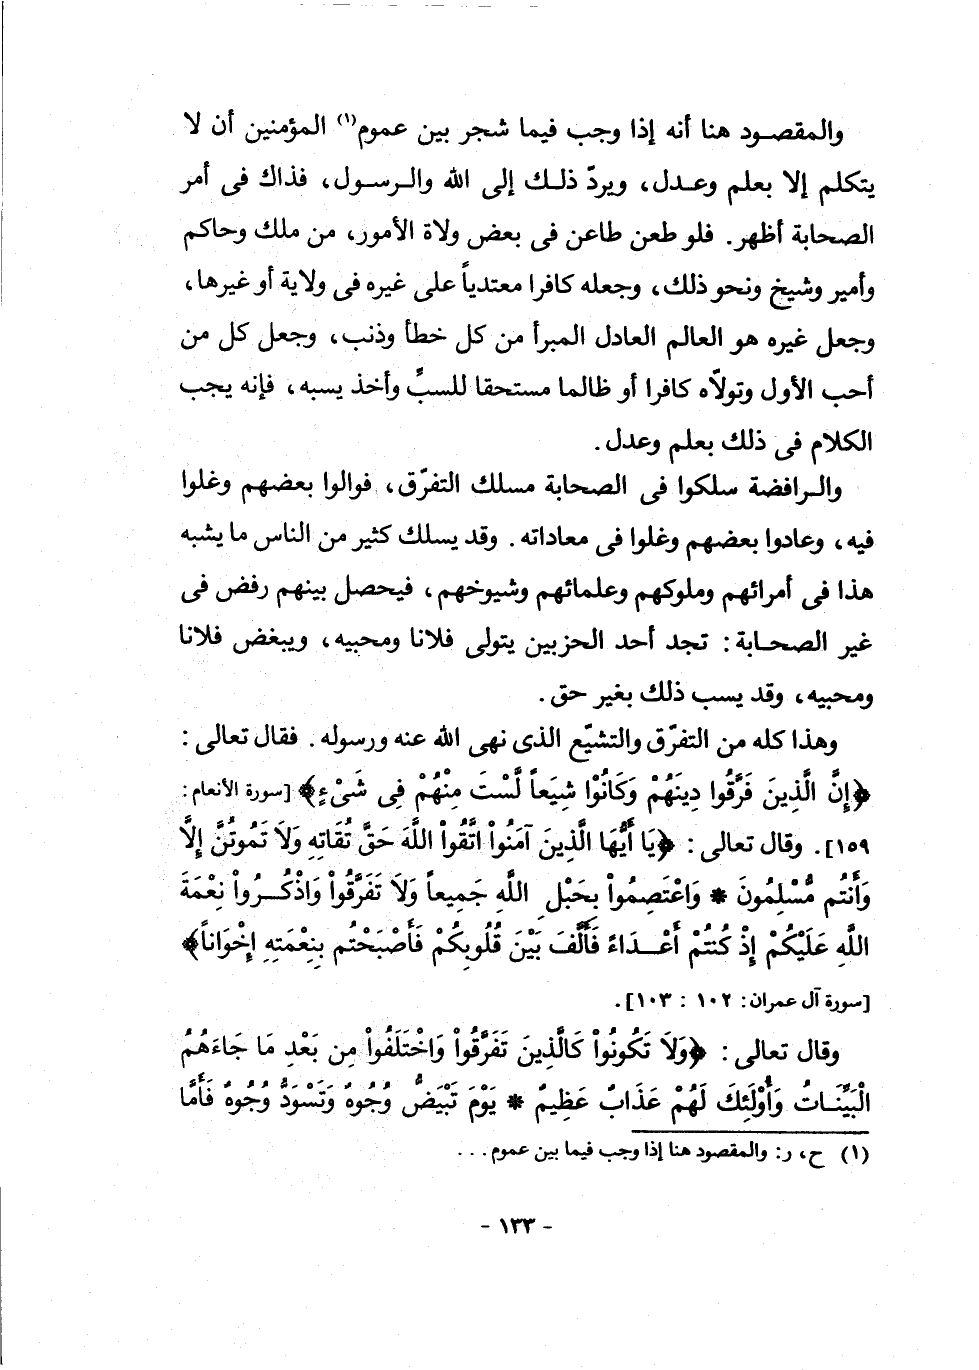 والمقصود هنا أنه إذا وجب فيما شجر بين عموم(١) المؤمنين أن لا
يتكلم إلا بعلم وعدل، ويردّ ذلك إلى الله والرسول، فذاك فى أمر
الصحابة أظهر. فلو طعن طاعن فى بعض ولاة الأمور، من ملك وحاكم
وأمير وشيخ ونحو ذلك، وجعله كافرا معتدياً على غيره فى ولاية أو غيرها،
وجعل غيره هو العالم العادل المبرأ من كل خطأ وذنب، وجعل كل من
أحب الأول وتولاّه كافرا أو ظالما مستحقا للسبِّ وأخذ يسبه، فإنه يجب
الكلام فى ذلك بعلم وعدل.
والرافضة سلكوا فى الصحابة مسلك التفرّق، فوالوا بعضهم وغلوا
فيه، وعادوا بعضهم وغلوا فى معاداته. وقد يسلك كثير من الناس ما يشبه
هذا فى أمرائهم وملوكهم وعلمائهم وشيوخهم، فيحصل بينهم رفض فى
غير الصحابة: تجد أحد الحزبين يتولى فلانا ومحبيه، ويبغض فلانا
ومحبيه، وقد يسب ذلك بغير حق.
وهذا كله من التفرّق والتشيّع الذى نهى الله عنه ورسوله. فقال تعالى:
﴿إِنَّ الَّذِينَ فَرَّقُوا دِينَهُمْ وَكَانُوْا شِيَعاً لَّسْتَ مِنْهُمْ فِى شَىْءٍ﴾ [سورة الأنعام:
١٥٩]. وقال تعالى: ﴿يَا أَيُّهَا الَّذِينَ آمَنُواْ اتَّقُواْ اللَّهَ حَقَّ تُقَاتِهِ وَلاَ تَمُوتُنَّ إِلَّا
وَأَنتُم مُّسْلِمُونَ * وَاعْتَصِمُواْ بِحَبْلِ اللَّهِ جَمِيعاً وَلاَ تَفَرَّقُواْ وَاذْكُرُواْ نِعْمَةَ
اللَّهِ عَلَيْكُمْ إِذْ كُنتُمْ أَعْدَاءً فَأَلَّفَ بَيْنَ قُلُوبِكُمْ فَأَصْبَحْتُم بِنِعْمَتِهِ إِخْوَاناً﴾
[سورة آل عمران: ١٠٢ : ١٠٣].
وقال تعالى: ﴿وَلاَ تَكُونُواْ كَالَّذِينَ تَفَرَّقُواْ وَاخْتَلَفُواْ مِن بَعْدِ مَا جَاءَهُمُ
الْبَيِّنَاتُ وَأُوْلَئِكَ لَهُمْ عَذَابٌ عَظِيمٌ * يَوْمَ تَبْيَضُّ وُجُوهٌ وَتَسْوَدُّ وُجُوهٌ فَأَمَّا
(١) ح، ر: والمقصود هنا إذا وجب فيما بين عموم...
- ١٣٣ -